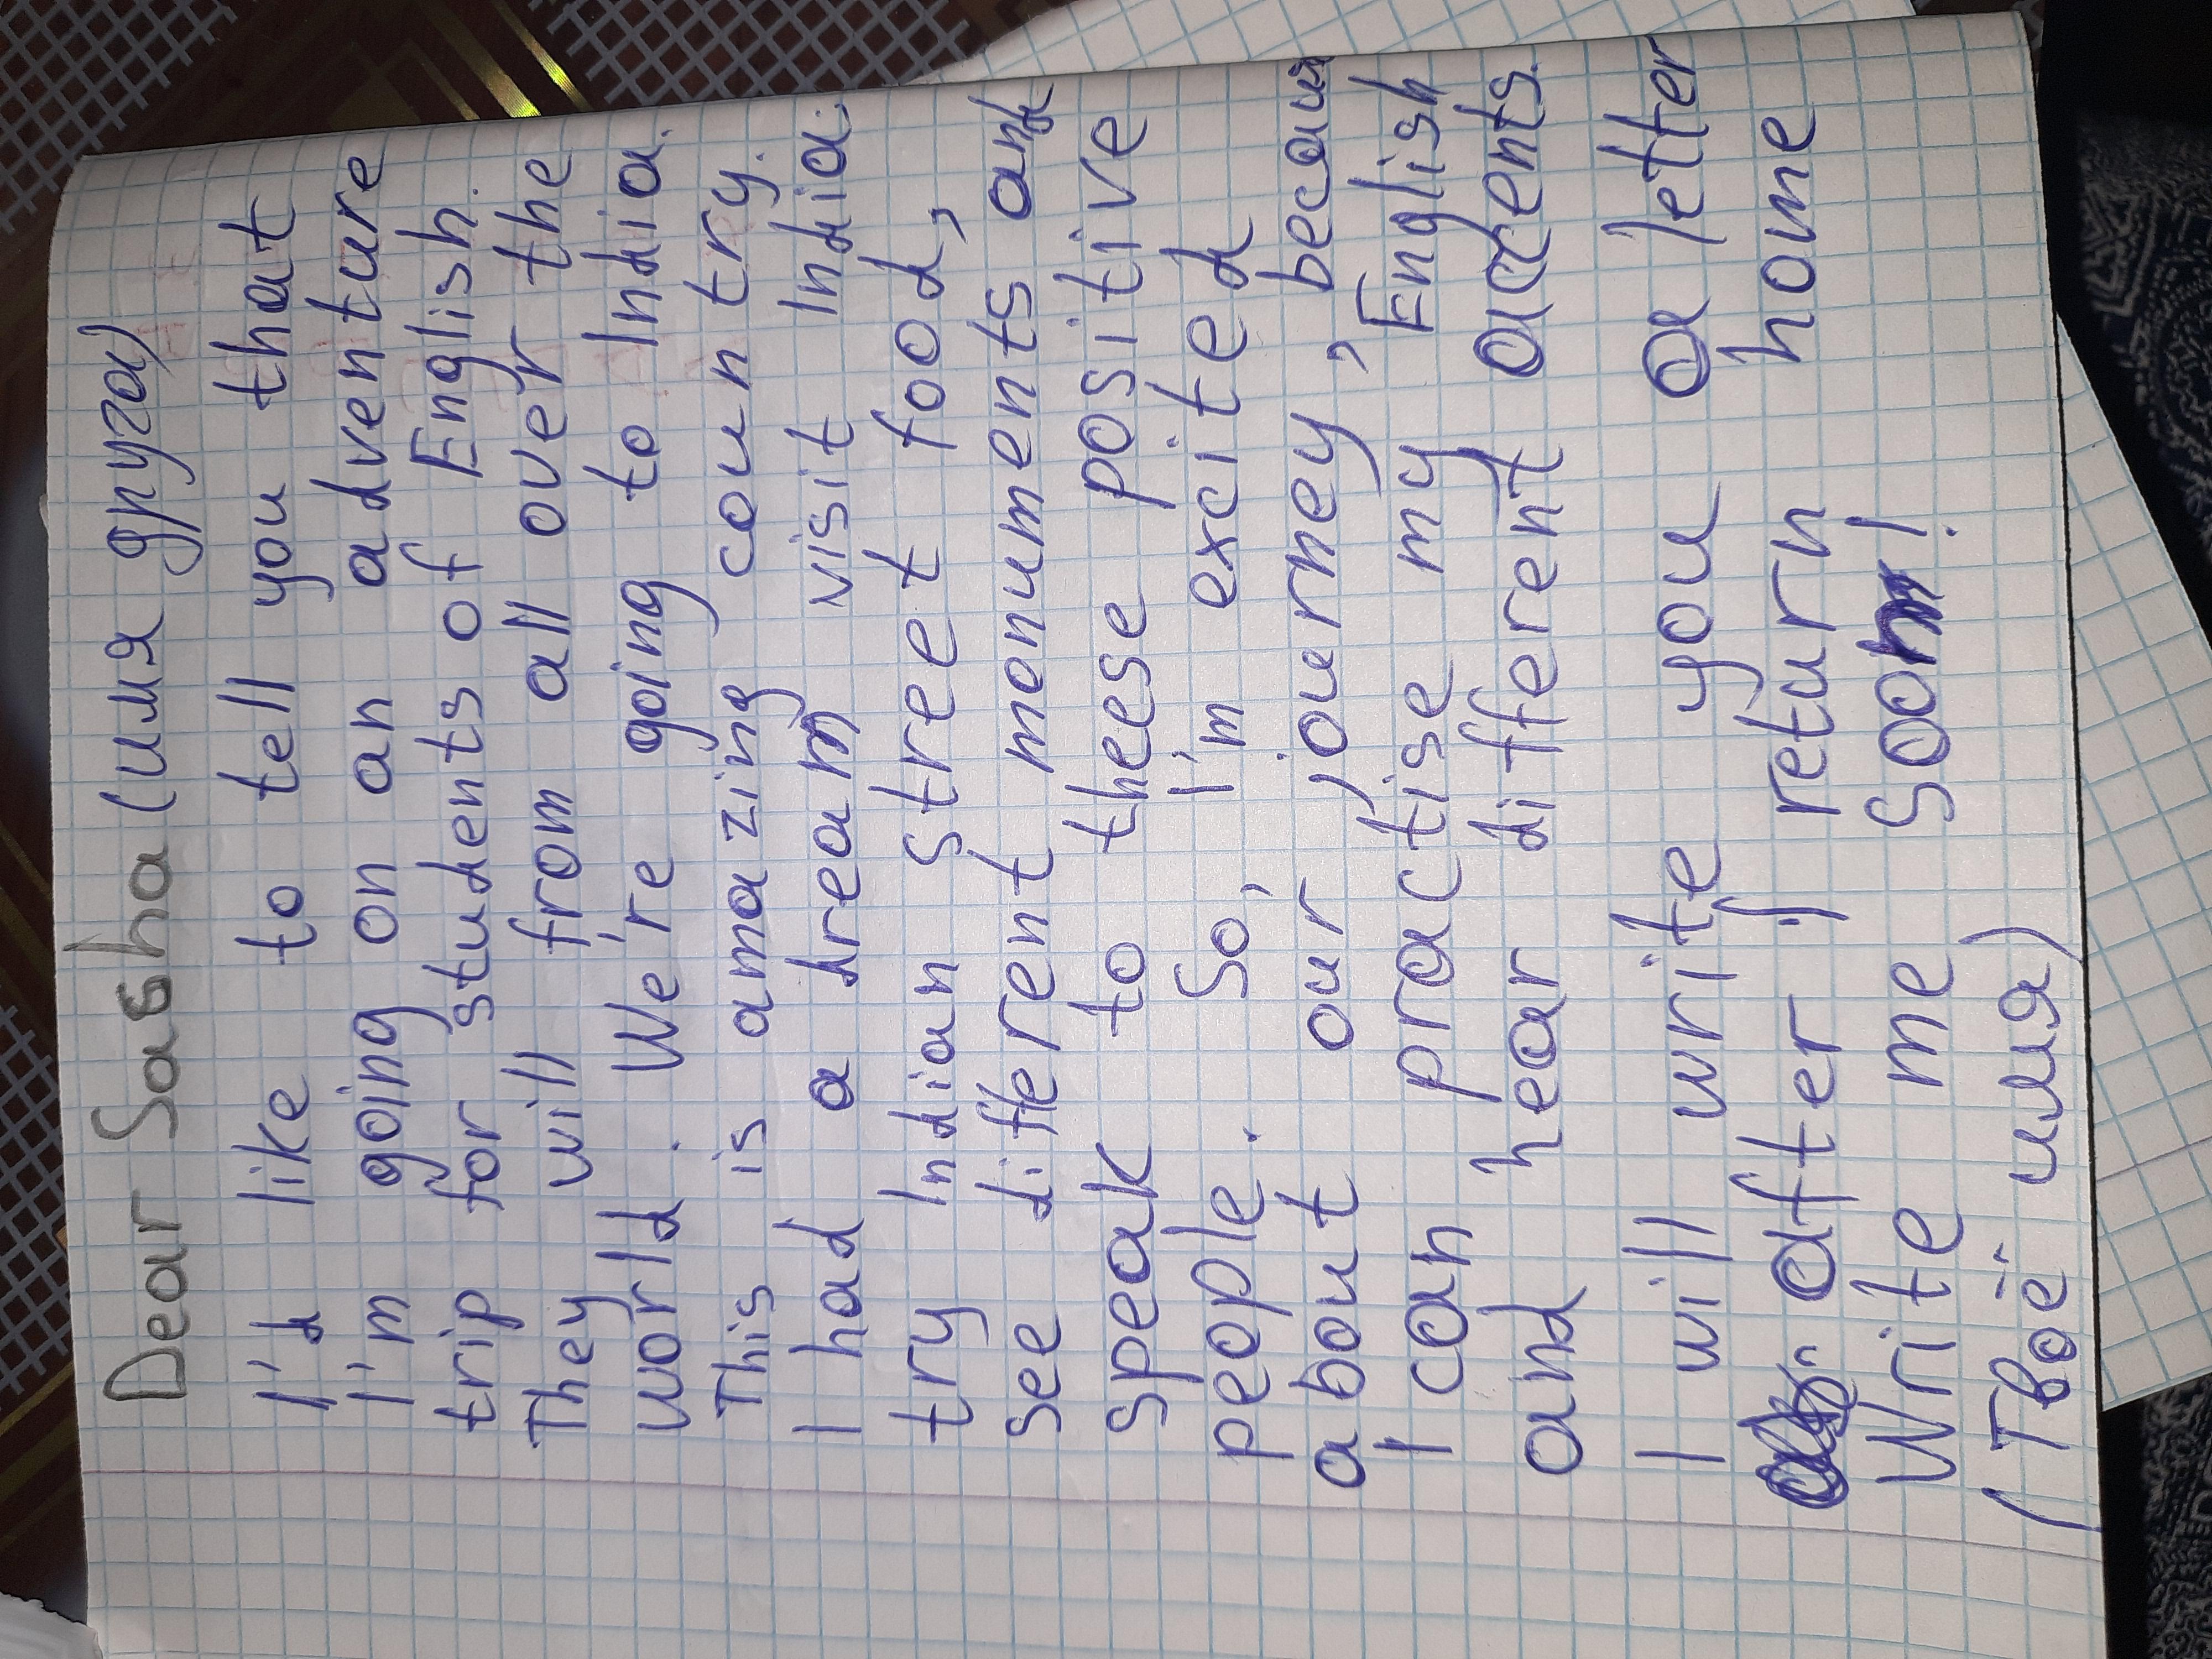 Dear Sasha (имя друга)
I'd like to tell you that
I'm going on an adventure
trip for students of English.
They will from all over the
world. We're going to India.
This is amazing country.
I had a dream visit India.
try Indian street food,
see different monuments and
speak to these positive
people. So, I'm excited
about our journey, because
I can practise my English
and hear different accents.
I will write you a letter
after I return home
Write me soon!
(Твоё имя)